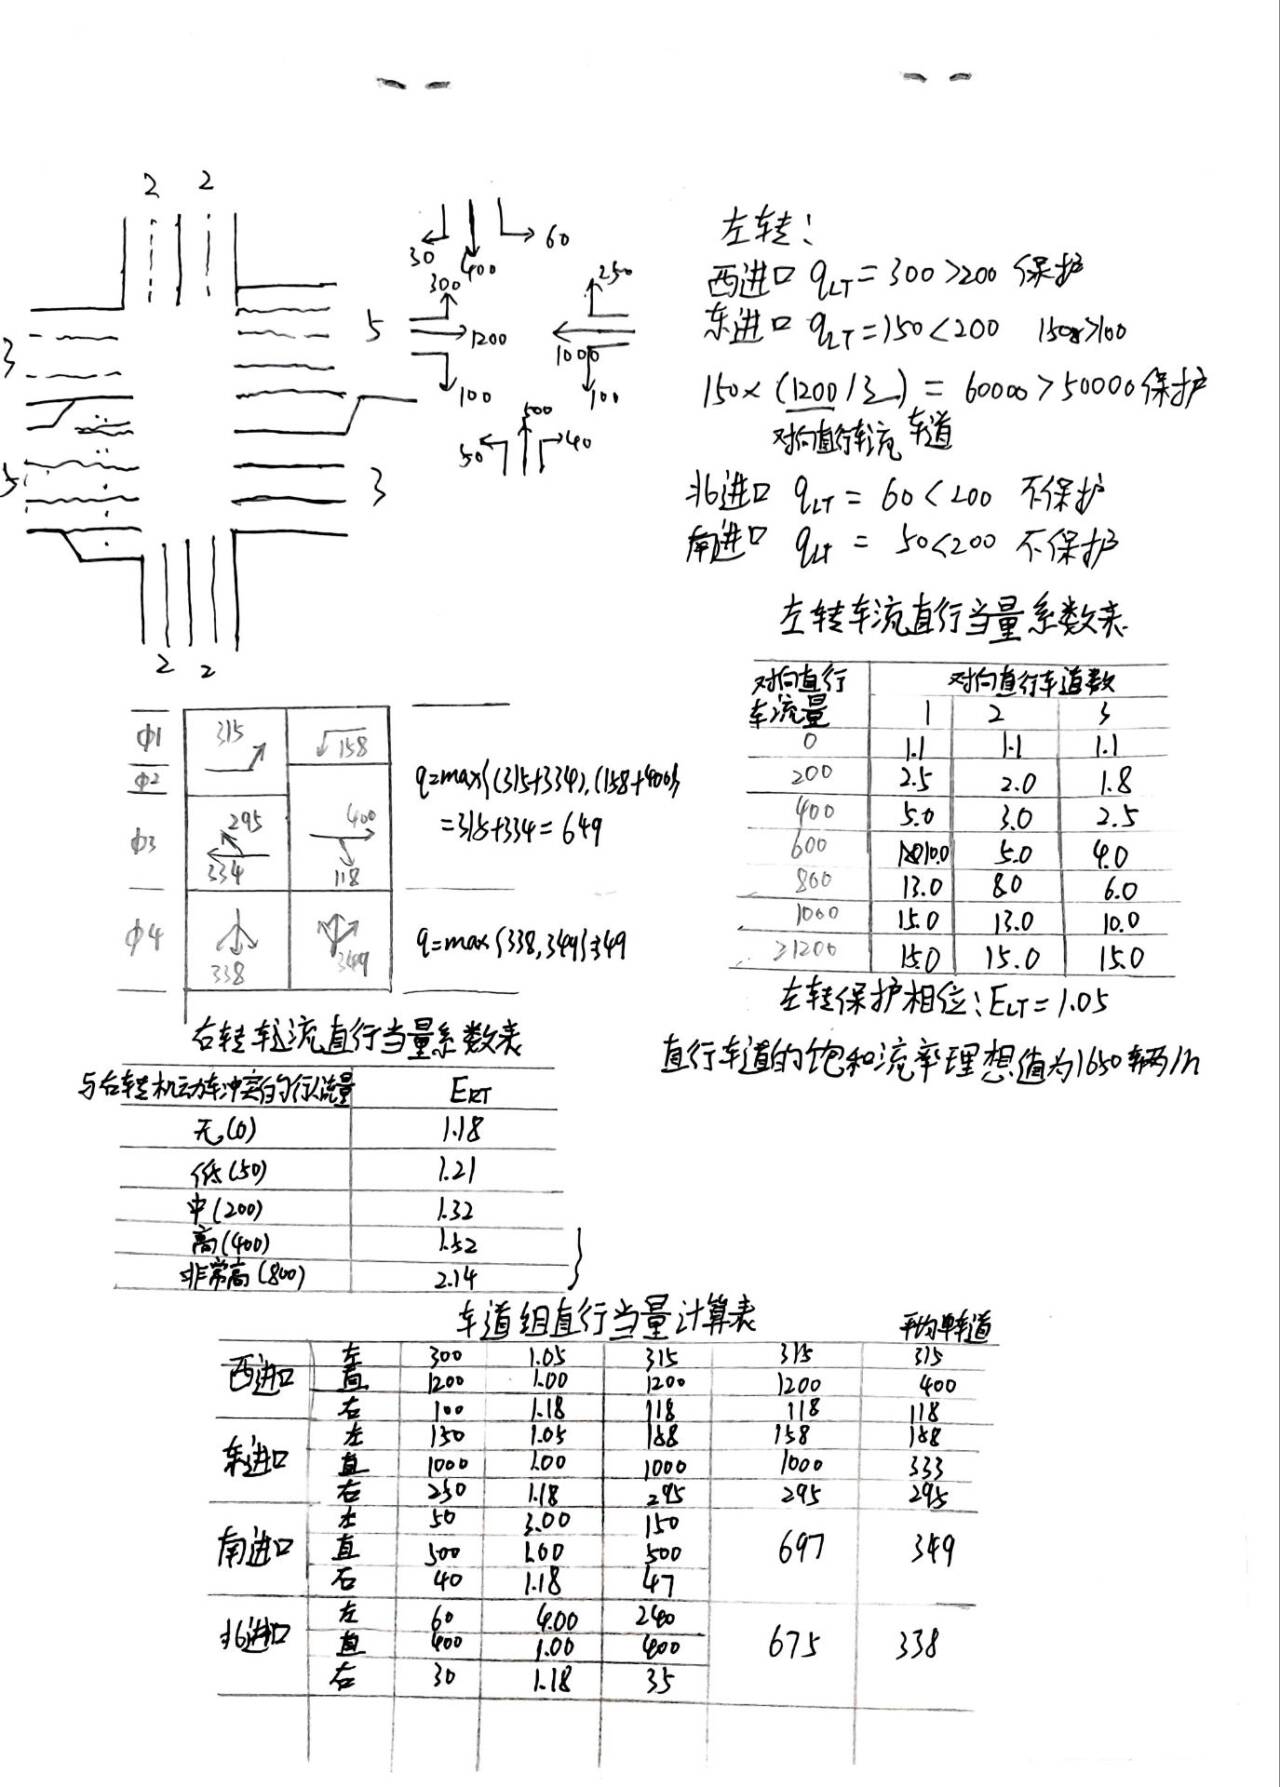 2 2
3
5
5
3
2 2
30 400 60
300
1200
100
250
1000
100
50 500 40
左转：
西进口 qLT = 300 > 200 保护
东进口 qLT = 150 < 200 150>100
150×(1200/3) = 60000 > 50000 保护
对向直行车流 车道
北进口 qLT = 60 < 200 不保护
南进口 qLT = 50 < 200 不保护
左转车流直行当量系数表
对向直行车流量 对向直行车道数
1 2 3
0 1.1 1.1 1.1
200 2.5 2.0 1.8
400 5.0 3.0 2.5
600 10.0 5.0 4.0
800 13.0 8.0 6.0
1000 15.0 13.0 10.0
≥1200 15.0 15.0 15.0
左转保护相位：ELT = 1.05
直行车道的饱和流率理想值为1650辆/h
Φ1 315 158
Φ2
Φ3 295 334 400 118
q=max{(315+334),(158+400)}
=315+334=649
Φ4 338 349
q=max{338,349}=349
右转车流直行当量系数表
与右转机动车冲突的行人流量 ERT
无(0) 1.18
低(50) 1.21
中(200) 1.32
高(400) 1.52
非常高(800) 2.14
车道组直行当量计算表 平均单车道
西进口 左 300 1.05 315 315 315
直 1200 1.00 1200 1200 400
右 100 1.18 118 118 118
东进口 左 150 1.05 158 158 158
直 1000 1.00 1000 1000 333
右 250 1.18 295 295 295
南进口 左 50 3.00 150
直 500 1.00 500 697 349
右 40 1.18 47
北进口 左 60 4.00 240
直 400 1.00 400 675 338
右 30 1.18 35